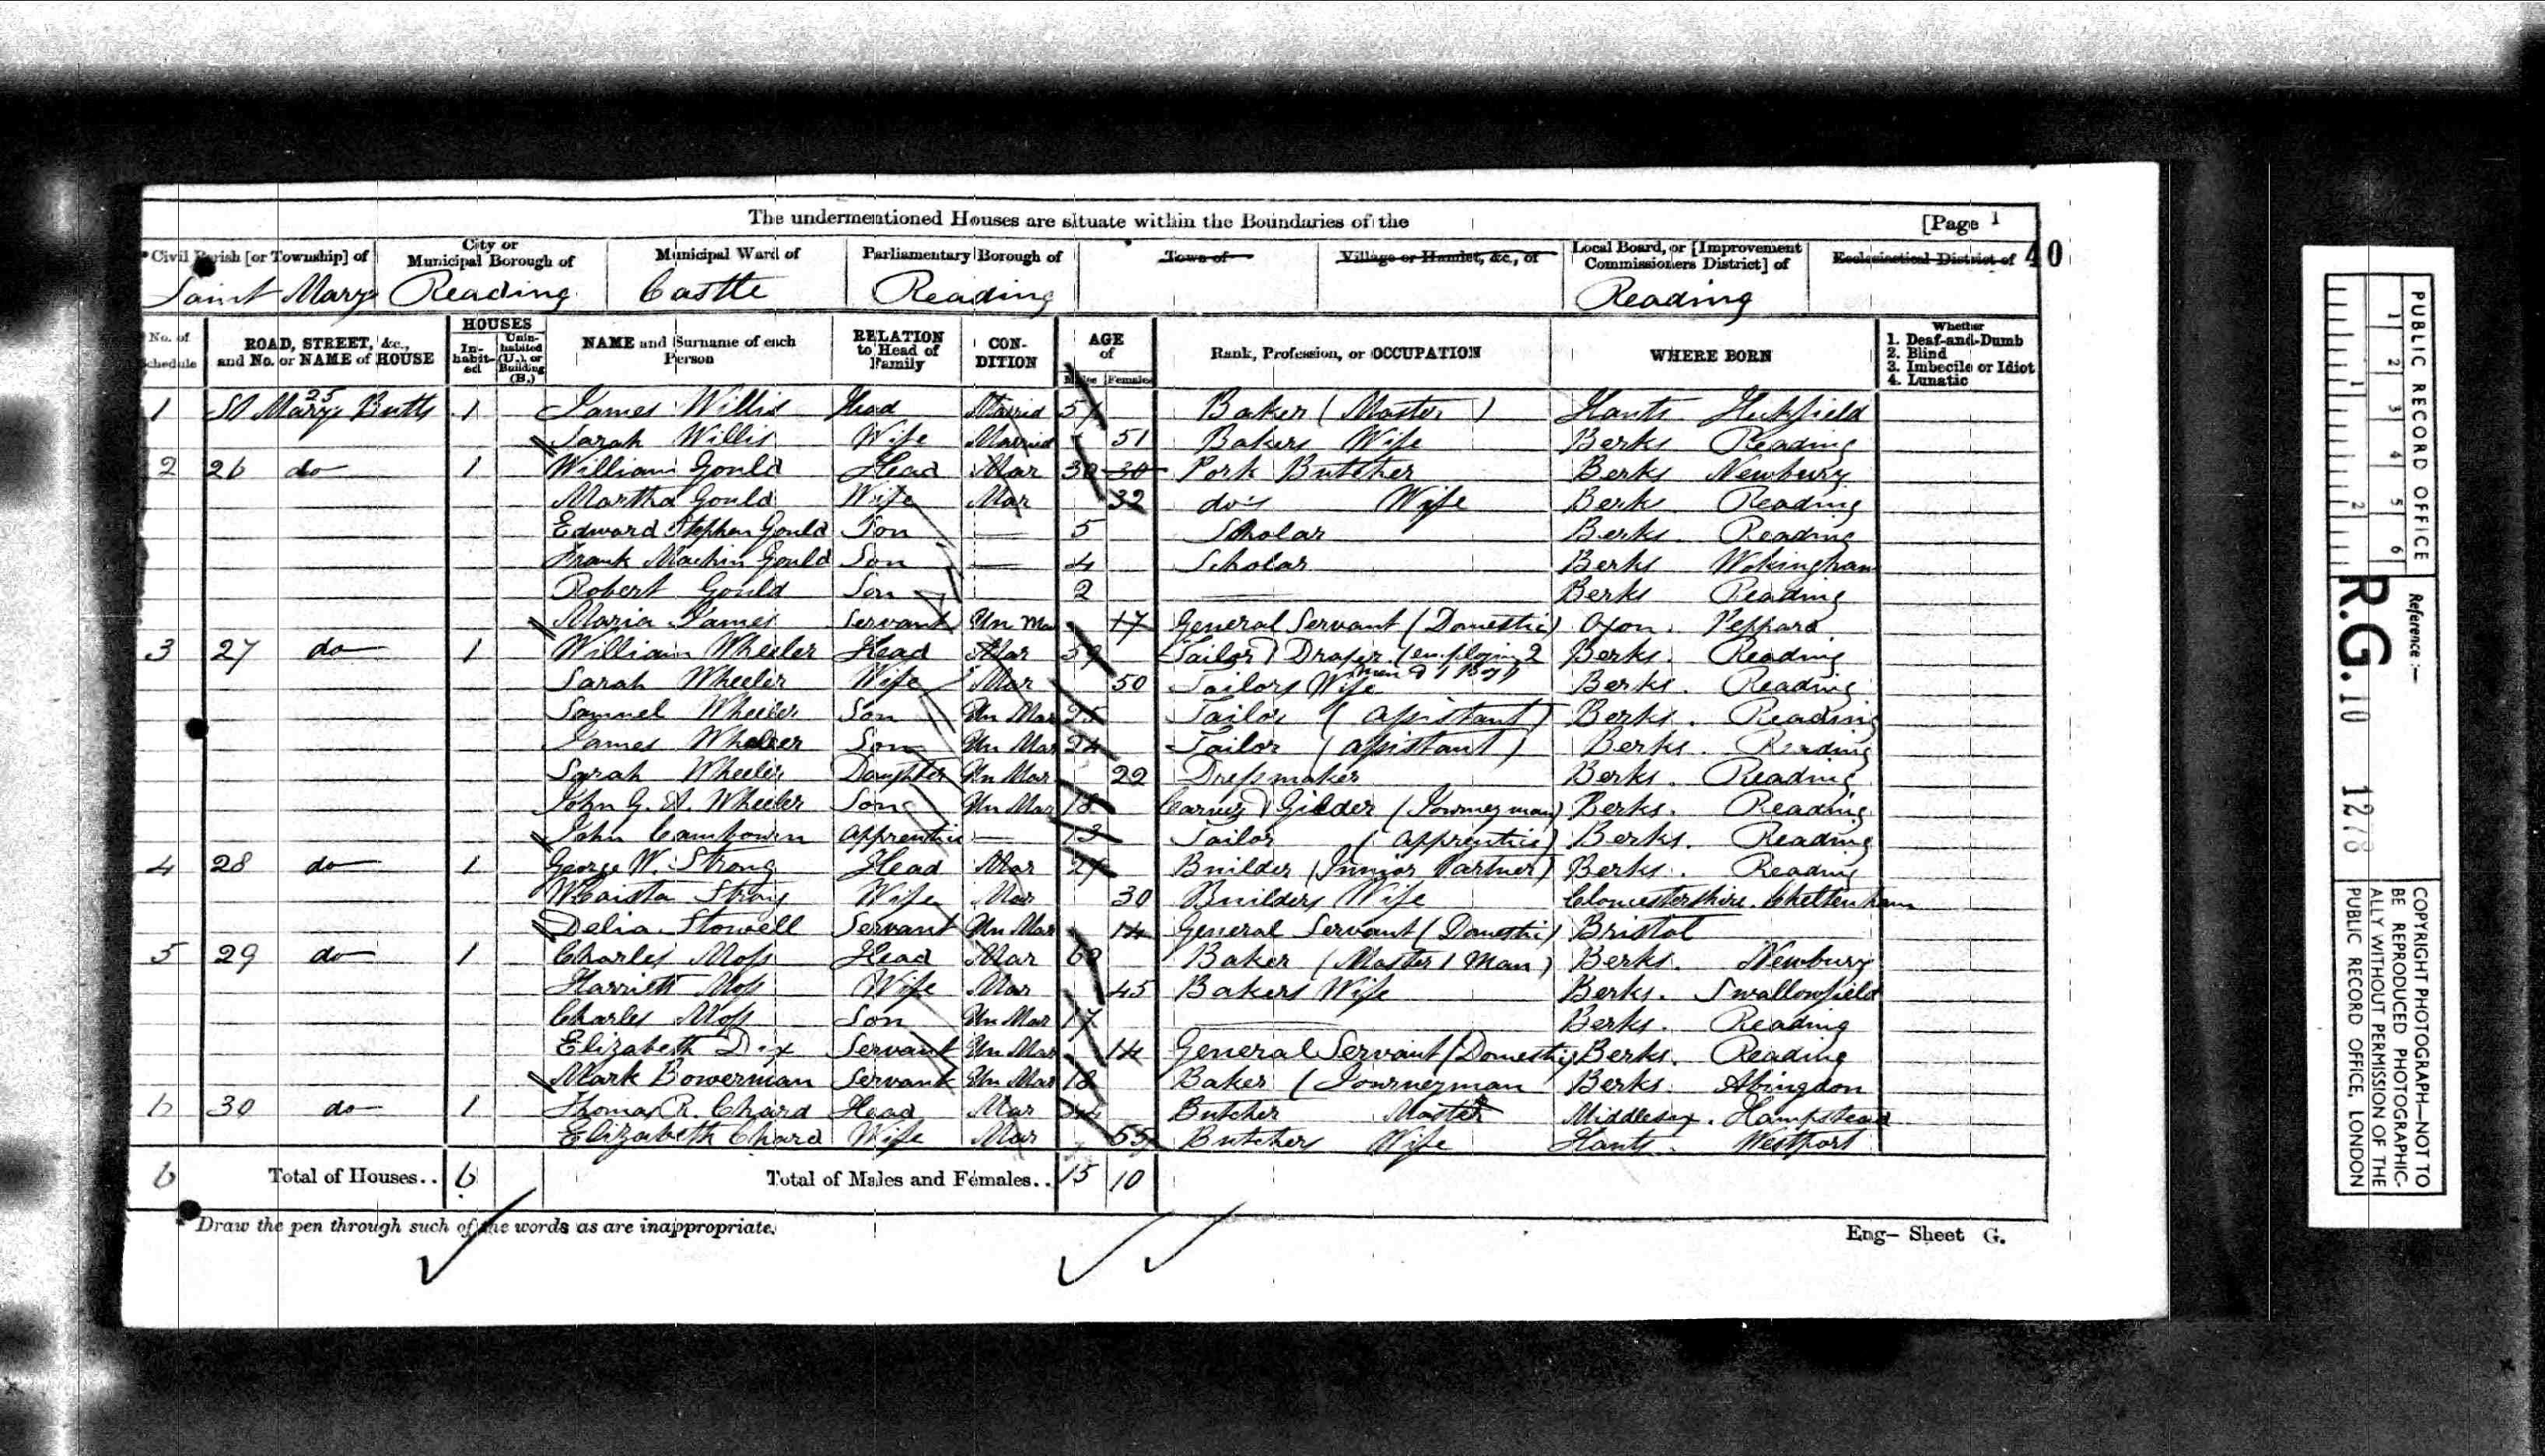 The undermentioned Houses are situate within the Boundaries of the [Page 1
Civil Parish [or Township] of City or Municipal Borough of Municipal Ward of Parliamentary Borough of Town of Village or Hamlet, &c., of Local Board, or [Improvement Commissioners District] of Ecclesiastical District of 40
Saint Marys Reading Castle Reading Reading
No. of Schedule ROAD, STREET, &c., and No. or NAME of HOUSE HOUSES Inhabited Uninhabited (U.), or Building (B.) NAME and Surname of each Person RELATION to Head of Family CONDITION AGE of Males Females Rank, Profession, or OCCUPATION WHERE BORN Whether 1. Deaf-and-Dumb 2. Blind 3. Imbecile or Idiot 4. Lunatic
1 25 St Marys Butts 1 James Willis Head Married Baker (Master) Hants Heckfield
Sarah Willis Wife Married 51 Bakers Wife Berks Reading
2 26 do 1 William Gould Head Mar 30 30 Pork Butcher Berks Newbury
Martha Gould Wife Mar 32 do's Wife Berk Reading
Edward Stephen Gould Son 5 Scholar Berks Reading
Frank Machin Gould Son 4 Scholar Berks Wokingham
Robert Gould Son 2 Berks Reading
Maria James Servant Un Mar 17 General Servant (Domestic) Oxon. Peppard
3 27 do 1 William Wheeler Head Mar 59 Tailor & Draper (employing 2 men & 1 Boy) Berks. Reading
Sarah Wheeler Wife Mar 50 Tailors Wife Berks. Reading
Samuel Wheeler Son Un Mar 25 Tailor (assistant) Berks. Reading
James Wheeler Son Un Mar 24 Tailor (assistant) Berks. Reading
Sarah Wheeler Daughter Un Mar 22 Dressmaker Berks. Reading
John G. A. Wheeler Son Un Mar 18 Carver & Gilder (Journeyman) Berks. Reading
John Apprentice 13 Tailor (apprentice) Berks. Reading
4 28 do 1 George W. Strong Head Mar Builder (Junior Partner) Berks. Reading
Strong Wife Mar 30 Builders Wife Gloucestershire. Cheltenham
Delia Stowell Servant Un Mar 14 General Servant (Domestic) Bristol
5 29 do 1 Charles Moss Head Mar Baker (Master 1 Man) Berks. Newbury
Harriett Moss Wife Mar 45 Bakers Wife Berks. Swallowfield
Charles Moss Son Un Mar 17 Berks. Reading
Elizabeth Dix Servant Un Mar 14 General Servant (Domestic) Berks. Reading
Mark Bowerman Servant Un Mar 18 Baker (Journeyman Berks. Abingdon
6 30 do 1 Thomas R. Chard Head Mar Butcher Master Middlesex. Hampstead
Elizabeth Chard Wife Mar 55 Butchers Wife Hants. Westport
6 Total of Houses.. 6 Total of Males and Females.. 15 10
Draw the pen through such of the words as are inappropriate.
Eng- Sheet G.
PUBLIC RECORD OFFICE
1 2 3 4 5 6
1 2
Reference :-
R.G. 10 1278
COPYRIGHT PHOTOGRAPH—NOT TO
BE REPRODUCED PHOTOGRAPHIC-
ALLY WITHOUT PERMISSION OF THE
PUBLIC RECORD OFFICE, LONDON